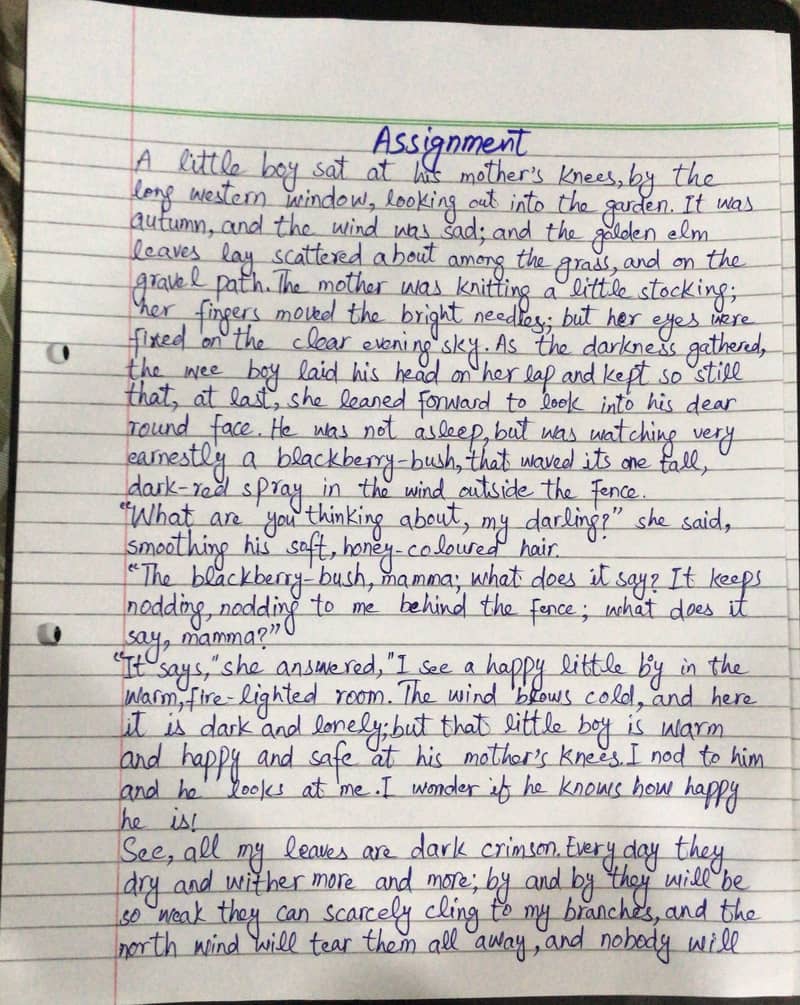 Assignment
A little boy sat at his mother's knees, by the
long western window, looking out into the garden. It was
autumn, and the wind was sad; and the golden elm
leaves lay scattered about among the grass, and on the
gravel path. The mother was knitting a little stocking;
her fingers moved the bright needles; but her eyes were
fixed on the clear evening sky. As the darkness gathered,
the wee boy laid his head on her lap and kept so still
that, at last, she leaned forward to look into his dear
round face. He was not asleep, but was watching very
earnestly a blackberry-bush, that waved its one tall,
dark-red spray in the wind outside the fence.
"What are you thinking about, my darling?" she said,
smoothing his soft, honey-coloured hair.
"The blackberry-bush, mamma; what does it say? It keeps
nodding, nodding to me behind the fence; what does it
say, mamma?"
"It says," she answered, "I see a happy little boy in the
warm, fire-lighted room. The wind blows cold, and here
it is dark and lonely; but that little boy is warm
and happy and safe at his mother's knees. I nod to him
and he looks at me. I wonder if he knows how happy
he is!
See, all my leaves are dark crimson. Every day they
dry and wither more and more; by and by they will be
so weak they can scarcely cling to my branches, and the
north wind will tear them all away, and nobody will